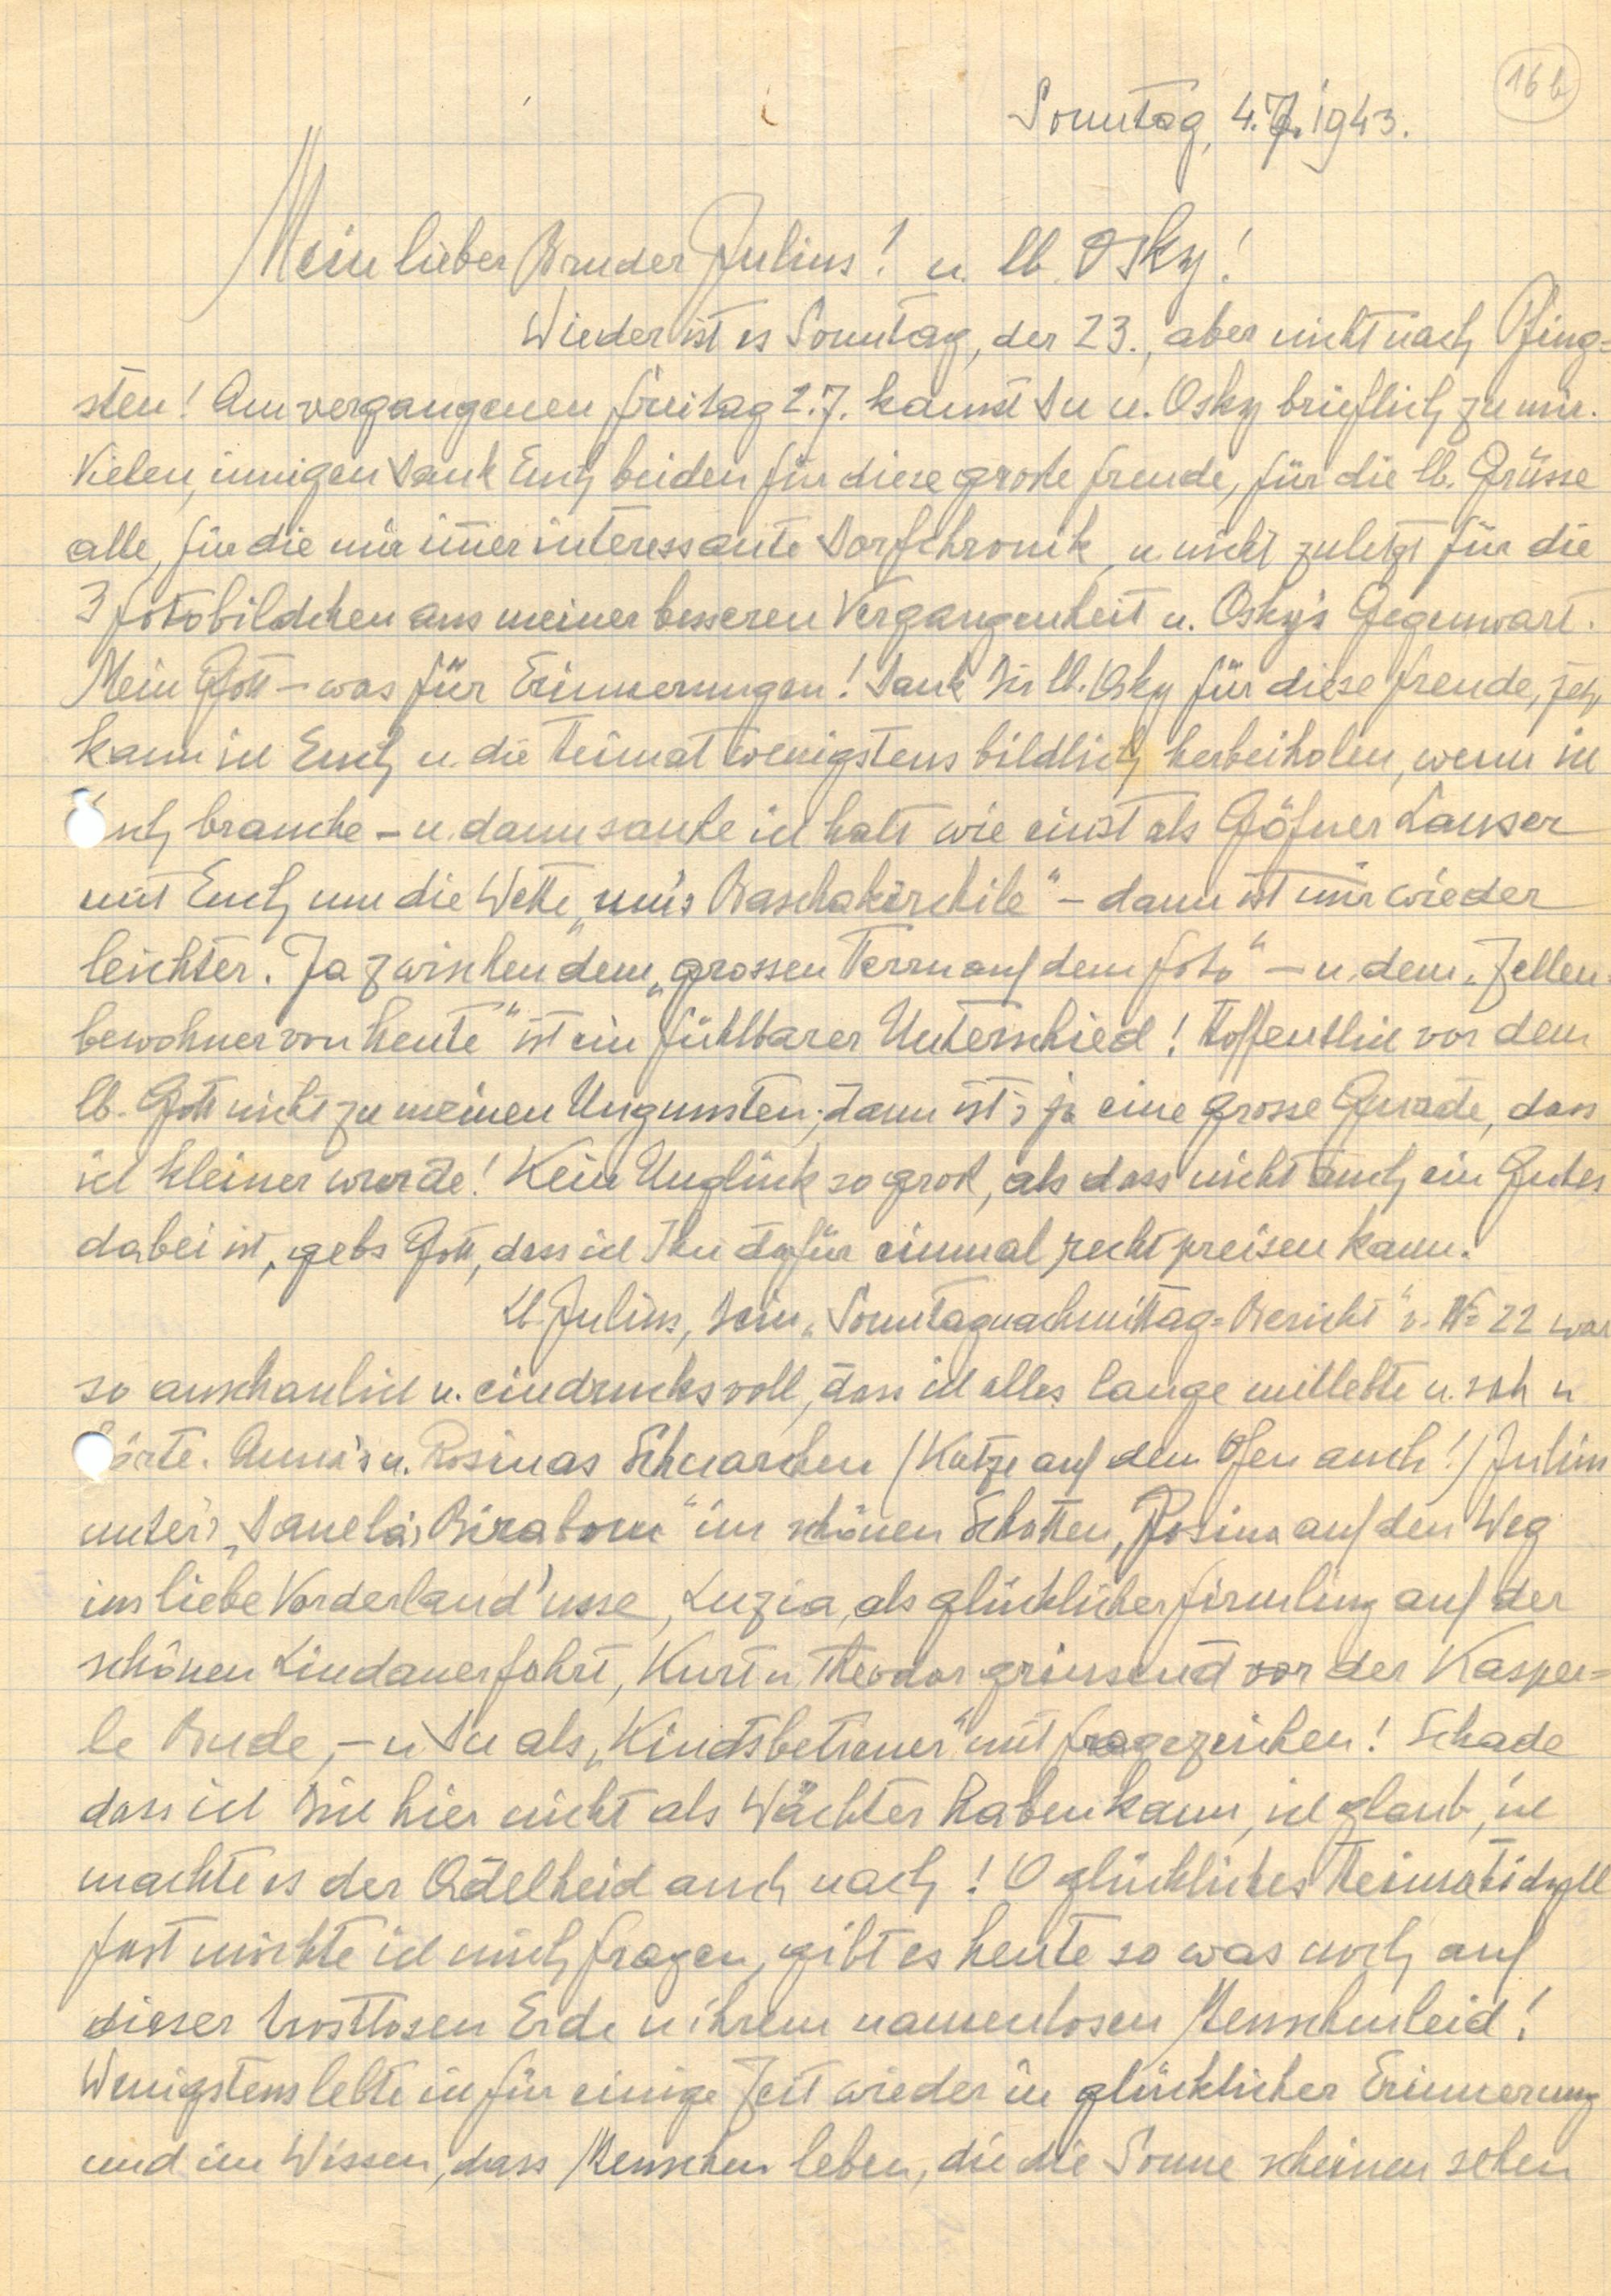 16 b
Sonntag, 4.7.1943.
Mein lieber Bruder Julius! u. lb. Osky!
Wieder ist es Sonntag, der 23., aber nicht nach Pfing=
sten! Am vergangenen Freitag 2.7. kamst Du u. Osky brieflich zu mir.
Vielen, innigen Dank Euch beiden für diese große Freude, für die lb. Grüsse
alle, für die mir im̅er interessante Dorfchronik, u. nicht zuletzt für die
3 Fotobildchen aus meiner besseren Vergangenheit u. Osky's Gegenwart.
Mein Gott – was für Erinnerungen! Dank Dir lb. Osky für diese Freude, jetzt
kann ich Euch u. die Heimat wenigstens bildlich herbeiholen, wenn ich
Euch brauche – u. dann sause ich halt wie einst als Göfner Lauser
mit Euch um die Wette „um's Baschakirchile" – dann ist mir wieder
leichter. Ja zwischen dem „grossen Herrn auf dem Foto" – u. dem „Zellen-
bewohner von heute" ist ein fühlbarer Unterschied! Hoffentlich vor dem
lb. Gott nicht zu meinen Ungunsten; dann ist's ja eine grosse Gnade, dass
ich kleiner wurde! Kein Unglück so groß, als dass nicht auch ein Gutes
dabei ist, gebs Gott, dass ich Ihn dafür einmal recht preisen kann.
Lb. Julius, Dein „Sonntagnachmittag=Bericht" v. № 22 war
so anschaulich u. eindrucksvoll, dass ich alles lange mitlebte u. sah u.
hörte. Anna's u. Rosinas Schnarchen (Katze auf dem Ofen auch!) Julius
unter's „Danela's Biraboum" im schönen Schatten, Rosina auf den Weg
ins liebe Vorderland 'usse, Luzia, als glücklicher Firmling auf der
schönen Lindauerfahrt, Kurt u. Theodor grinsend vor der Kasper=
le Bude, – u. Du als „Kindsbetreuer" mit Fragezeichen! Schade
dass ich Dich hier nicht als Wächter haben kann, ich glaub, ich
machte es der Adelheid auch nach! O glückliches Heimatidyll
fast möchte ich mich fragen, gibt es heute so was noch auf
dieser trostlosen Erde u. ihrem namenlosen Menschenleid!
Wenigstens lebte ich für einige Zeit wieder in glücklicher Erinnerung
und im Wissen, dass Menschen leben, die die Sonne scheinen sehen